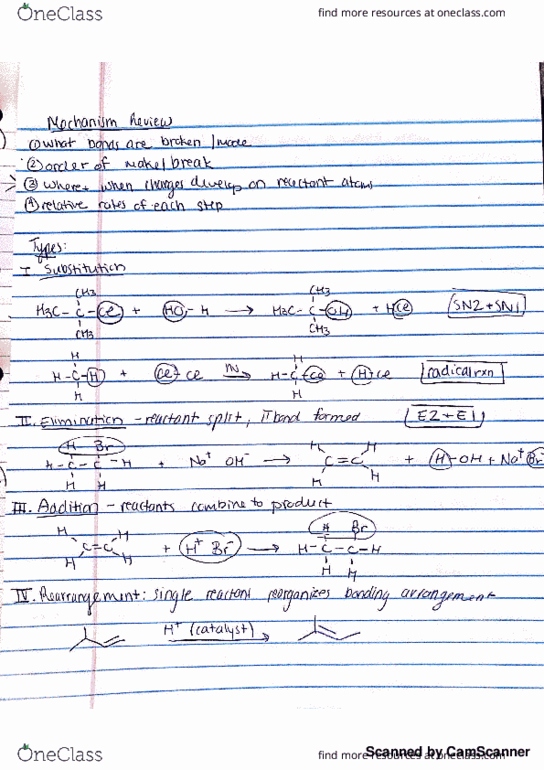 OneClass
find more resources at oneclass.com
Mechanism Review
① what bonds are broken / made
② order of make / break
③ where + when charges develop on reactant atoms
④ relative rates of each step
Types:
I. Substitution
CH3 CH3
H3C - C - Cl + HO - H → H3C - C - OH + HCl SN2 + SN1
CH3 CH3
H H
H - C - H + Cl - Cl hν → H - C - Cl + H - Cl radical rxn
H H
II. Elimination - reactant split, π bond formed E2 + E1
H Br H H
H - C - C - H + Na+ OH- → C = C + H - OH + Na+ Br-
H H H H
III. Addition - reactants combine to product
H H H Br
C = C + H+ Br- → H - C - C - H
H H H H
IV. Rearrangement: single reactant reorganizes bonding arrangement
H+ (catalyst)
OneClass
find more resources at oneclass.com
Scanned by CamScanner